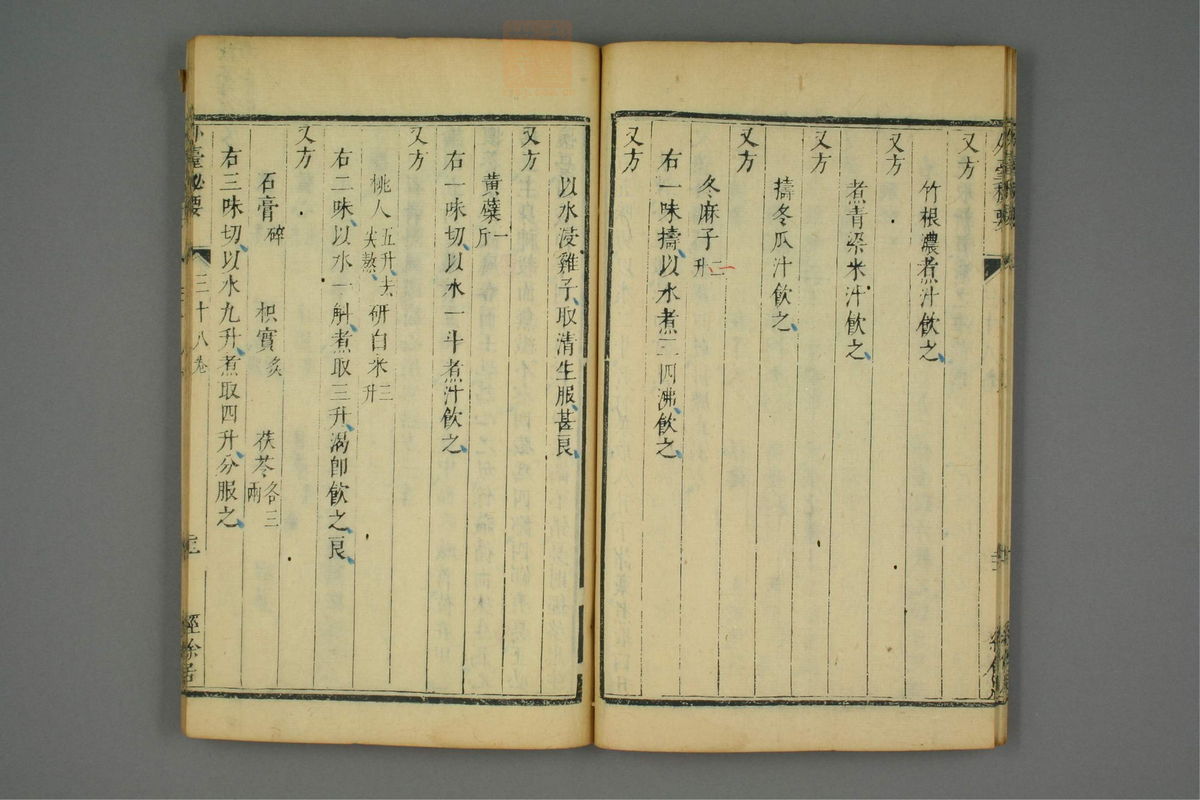 又方
竹根濃煮汁飲之
又方
煮青粱米汁飲之
又方
擣冬瓜汁飲之
又方
冬麻子二升
右一味擣以水煮三四沸飲之
又方
以水浸雞子取清生服甚良
又方
黃蘗一斤
右一味切以水一斗煮汁飲之
又方
桃人五升去尖熬研白米三升
右二味以水一斛煮取三升渴卽飲之良
又方
石膏碎 枳實炙 茯苓各三兩
右三味切以水九升煮取四升分服之
外臺秘要 三十八卷 經餘居